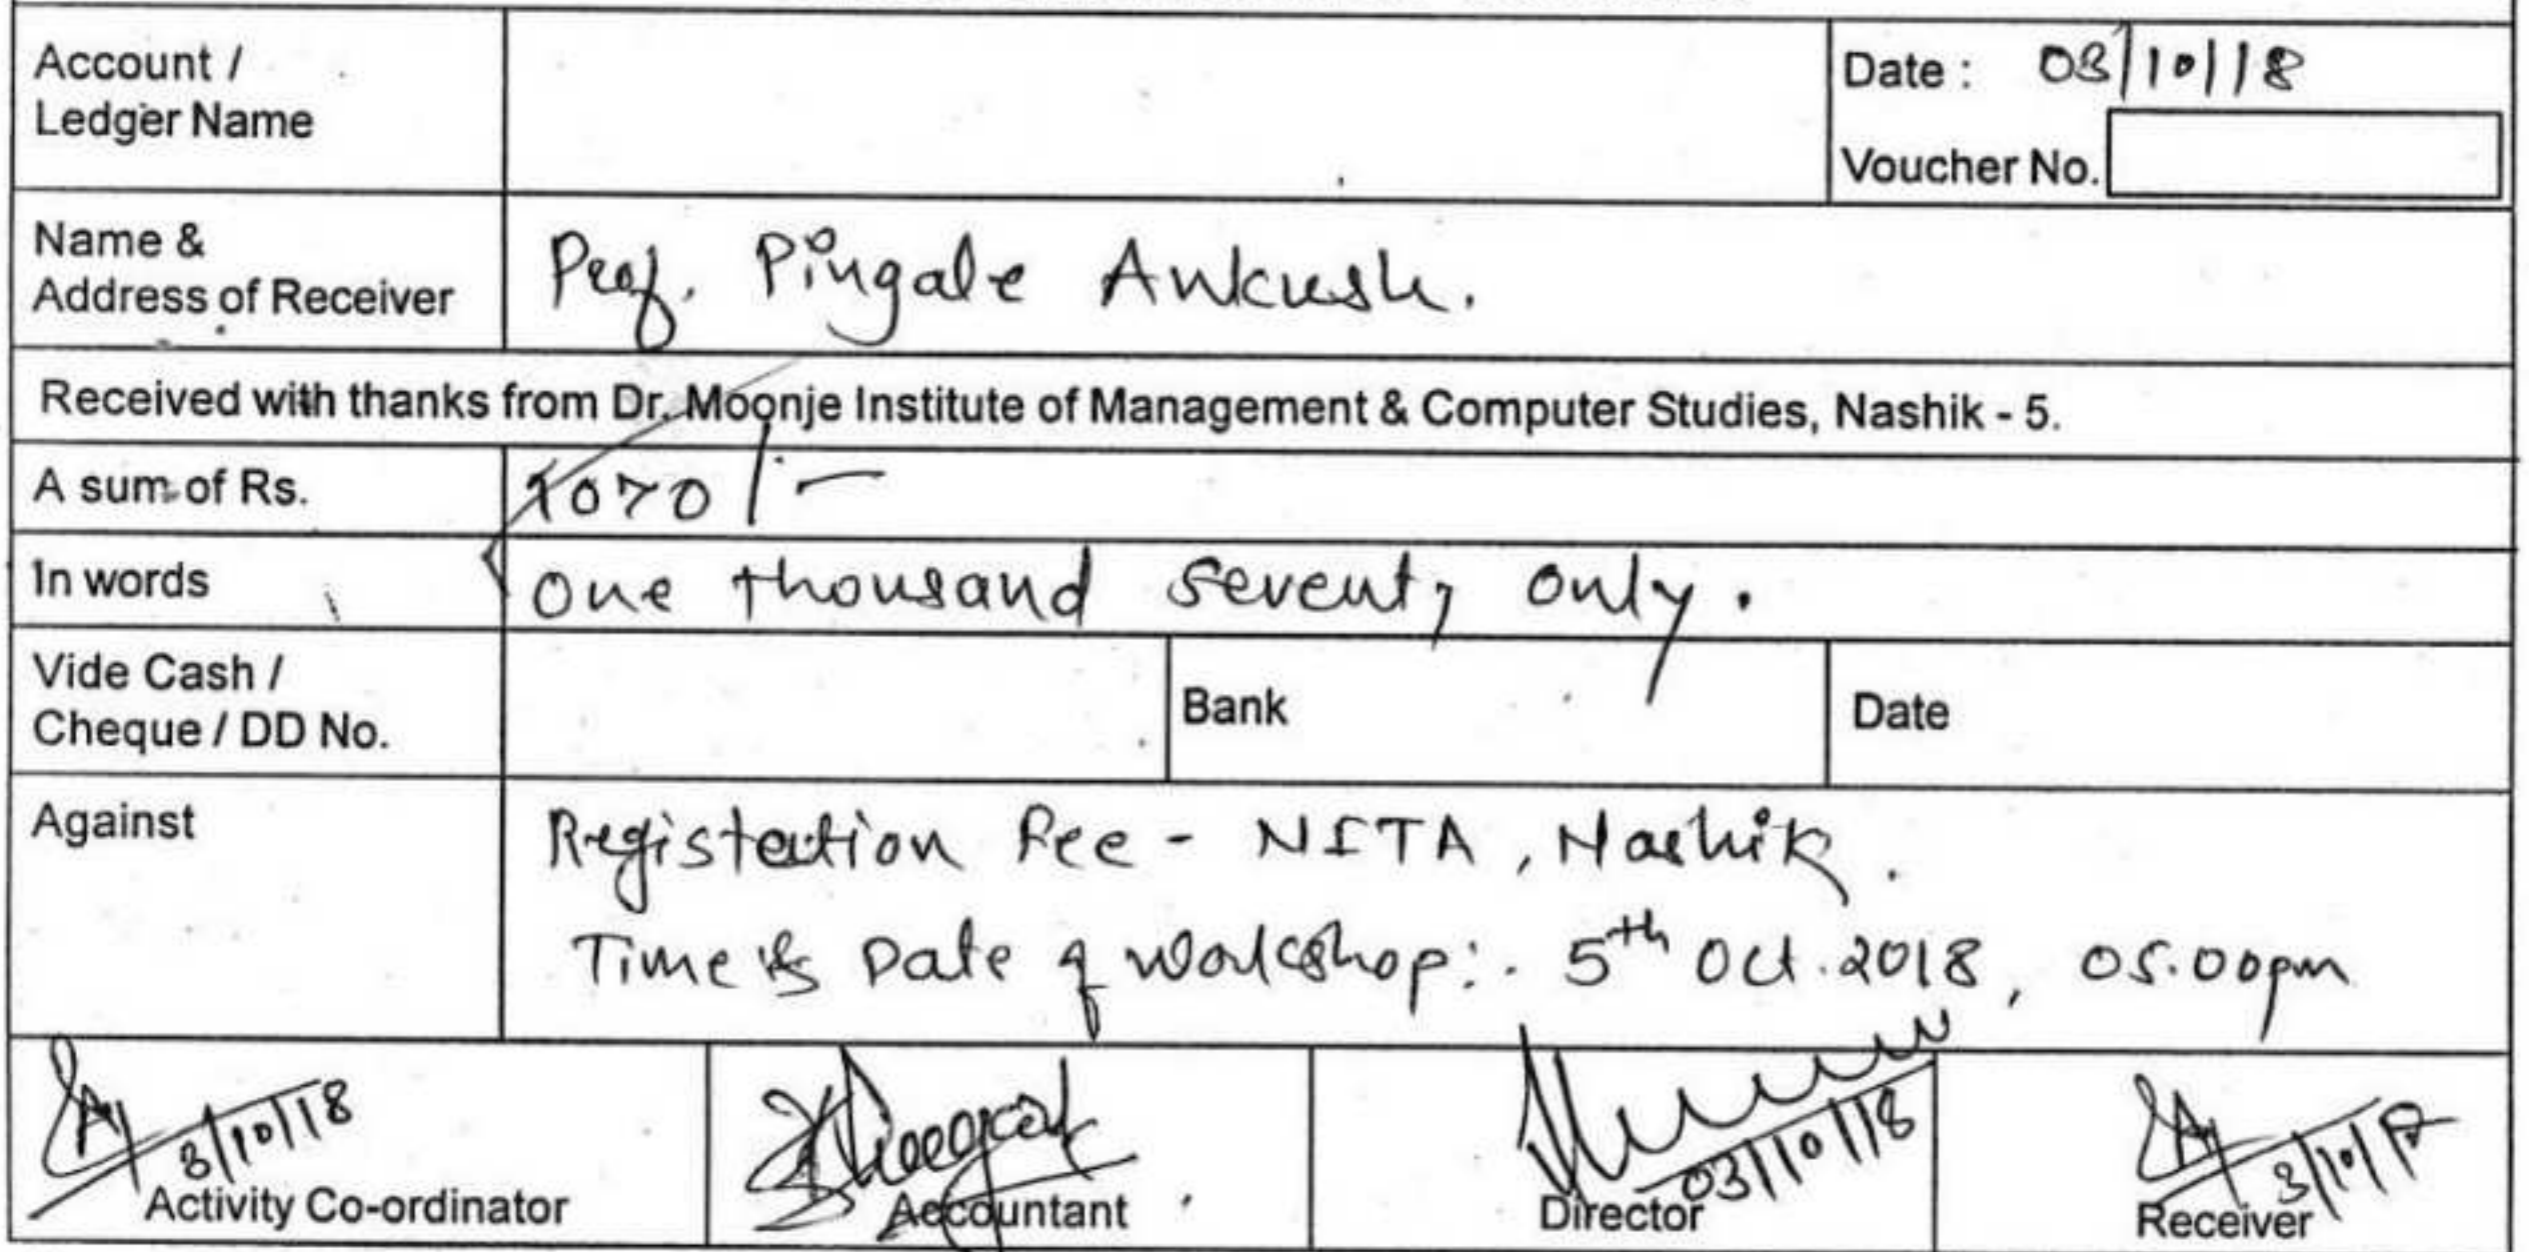 Account /
Ledger Name
Date : 03/10/18
Voucher No.
Name &
Address of Receiver
Prof. Pingale Ankush.
Received with thanks from Dr. Moonje Institute of Management & Computer Studies, Nashik - 5.
A sum of Rs. 1070/-
In words One thousand seventy only.
Vide Cash /
Cheque / DD No.
Bank
Date
Against
Registration Fee - NITA, Nashik.
Time & Date of Workshop:- 5th Oct. 2018, 05.00pm
3/10/18
03/10/18
3/10/18
Activity Co-ordinator
Accountant
Director
Receiver